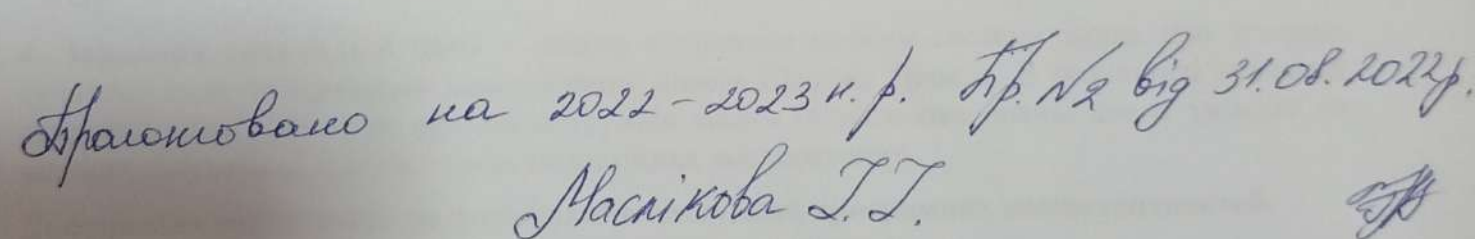 Пролонговано на 2022-2023 н.р. Пр. №2 від 31.08.2022р.
Маслікова І.І.